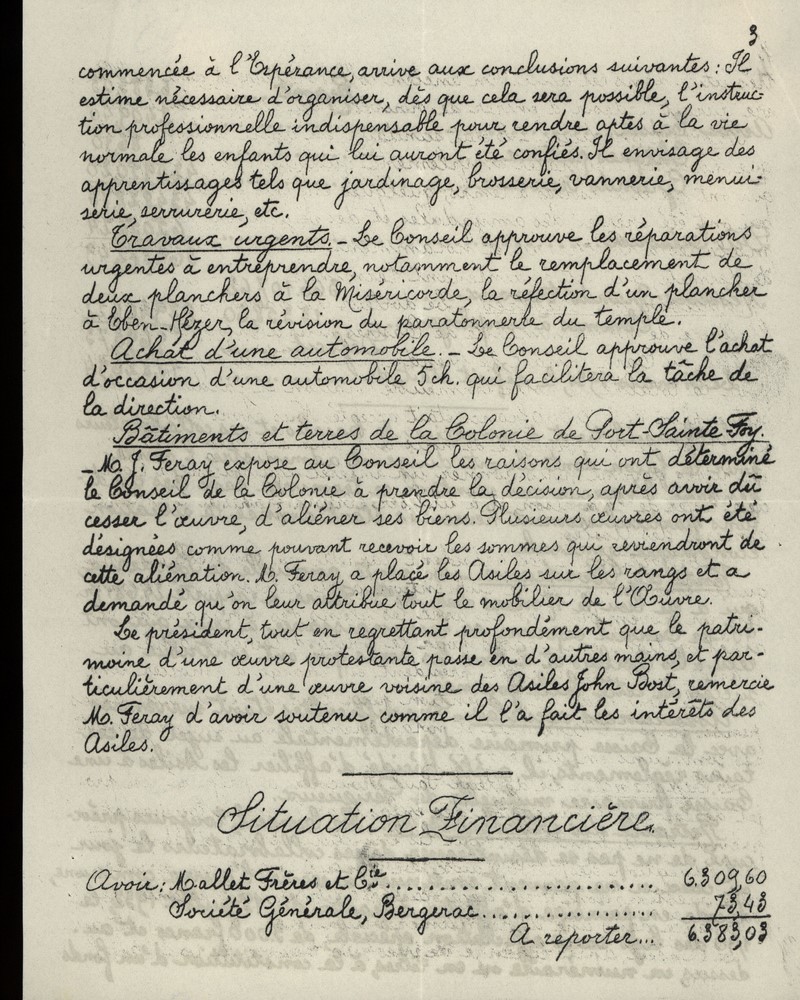 3
commencée à l'Espérance, arrive aux conclusions suivantes : Il
estime nécessaire d'organiser, dès que cela sera possible, l'instruc-
tion professionnelle indispensable pour rendre aptes à la vie
normale les enfants qui lui auront été confiés. Il envisage des
apprentissages tels que jardinage, brosserie, vannerie, menui-
serie, serrurerie, etc.
Travaux urgents. - Le Conseil approuve les réparations
urgentes à entreprendre, notamment le remplacement de
deux planchers à la Miséricorde, la réfection d'un plancher
à Eben-Hézer, la révision du paratonnerre du temple.
Achat d'une automobile. - Le Conseil approuve l'achat
d'occasion d'une automobile 5 ch. qui facilitera la tâche de
la direction.
Bâtiments et terres de la Colonie de Port-Sainte-Foy.
- M. J. Feray expose au Conseil les raisons qui ont déterminé
le Conseil de la Colonie à prendre la décision, après avoir dû
cesser l'œuvre, d'aliéner ses biens. Plusieurs œuvres ont été
désignées comme pouvant recevoir les sommes qui reviendront de
cette aliénation. M. Feray a placé les Asiles sur les rangs et a
demandé qu'on leur attribue tout le mobilier de l'Œuvre.
Le président, tout en regrettant profondément que le patri-
moine d'une œuvre protestante passe en d'autres mains, et par-
ticulièrement d'une œuvre voisine des Asiles John Bost, remercie
M. Feray d'avoir soutenu comme il l'a fait les intérêts des
Asiles.
Situation Financière.
Avoir : Mallet Frères et Cie .......................... 6.309,60
Société Générale, Bergerac .................. 73,43
A reporter... 6.383,03